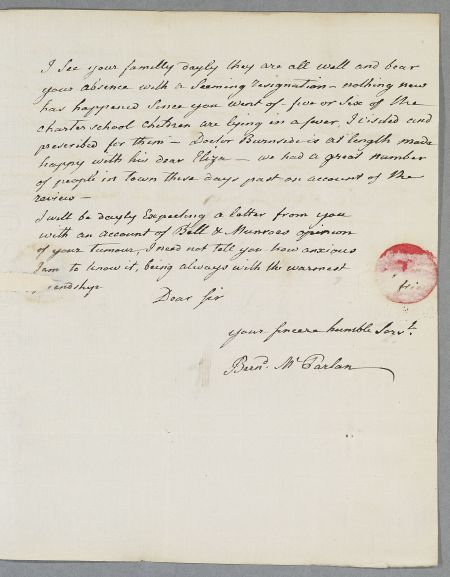 I See your familly dayly they are all well and bear
your absence with a Seeming resignation – nothing new
has happened Since you went of five or Six of the
charter School Children are lying in a fever, I visited and
prescribed for them – Doctor Burnside is at length made
happy with his dear Eliza – we had a great number
of people in town these days past on account of the
review –
I will be dayly Expecting a letter from you
with an account of Bell & Munroes opinion
of your tumour, I need not tell you how anxious
I am to know it, being always with the warmest
endship
Dear Sir
your sincere humble Serv.t
Bern.d Mc Parlan